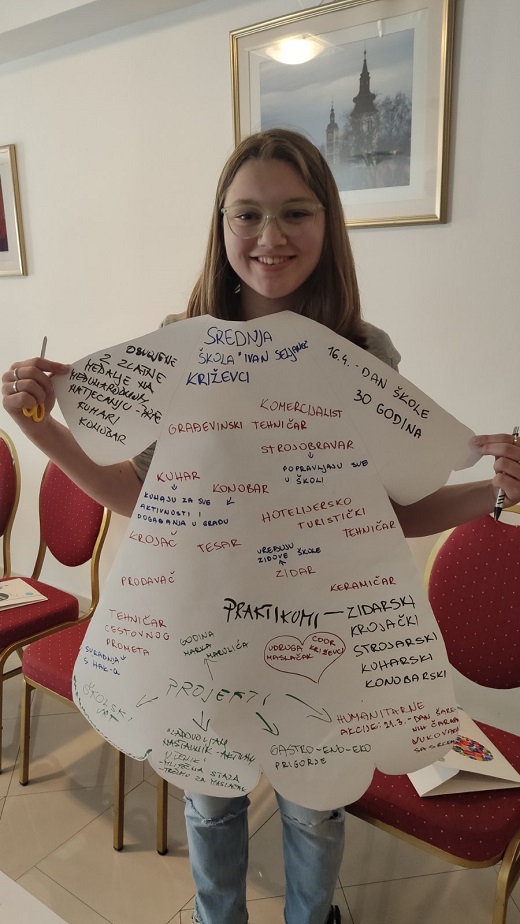 SREDNJA
ŠKOLA "IVAN SELJANEC"
KRIŽEVCI
OSVOJENE
2 ZLATNE
MEDALJE NA
MEĐUNARODNOM
NATJECANJU
KUHARI
KONOBAR
16.4. - DAN ŠKOLE
30 GODINA
KOMERCIJALIST
GRAĐEVINSKI TEHNIČAR
STROJOBRAVAR
POPRAVLJAJU SVE
U ŠKOLI
KUHAR
KUHAJU ZA SVE
AKTIVNOSTI I
DOGAĐANJA U GRADU
KONOBAR
HOTELIJERSKO
TURISTIČKI
TEHNIČAR
KROJAČ TESAR
UREĐUJU
ZIDOVE ŠKOLE
ZIDAR
PRODAVAČ
KERAMIČAR
PRAKTIKUMI — ZIDARSKI
KROJAČKI
STROJARSKI
KUHARSKI
KONOBARSKI
TEHNIČAR
CESTOVNOG
PROMETA
SURADNJA
S HAK-OM
GODINA
MARKA
UDRUGA
MASLAČAK
COOR
KRIŽEVCI
PROJEKTI
ŠKOLSKI
VRT
NASTAVNIK - AKTIVNI
UČENIK
MLIJEČNA STAZA
TRČIMO ZA MASLAČAK
GASTRO-END-EKO
PRIGORJE
HUMANITARNE
AKCIJE: 21.3. - DAN ŠARE
NIH ČARAPA
VUKOVAR
SA SRCEM